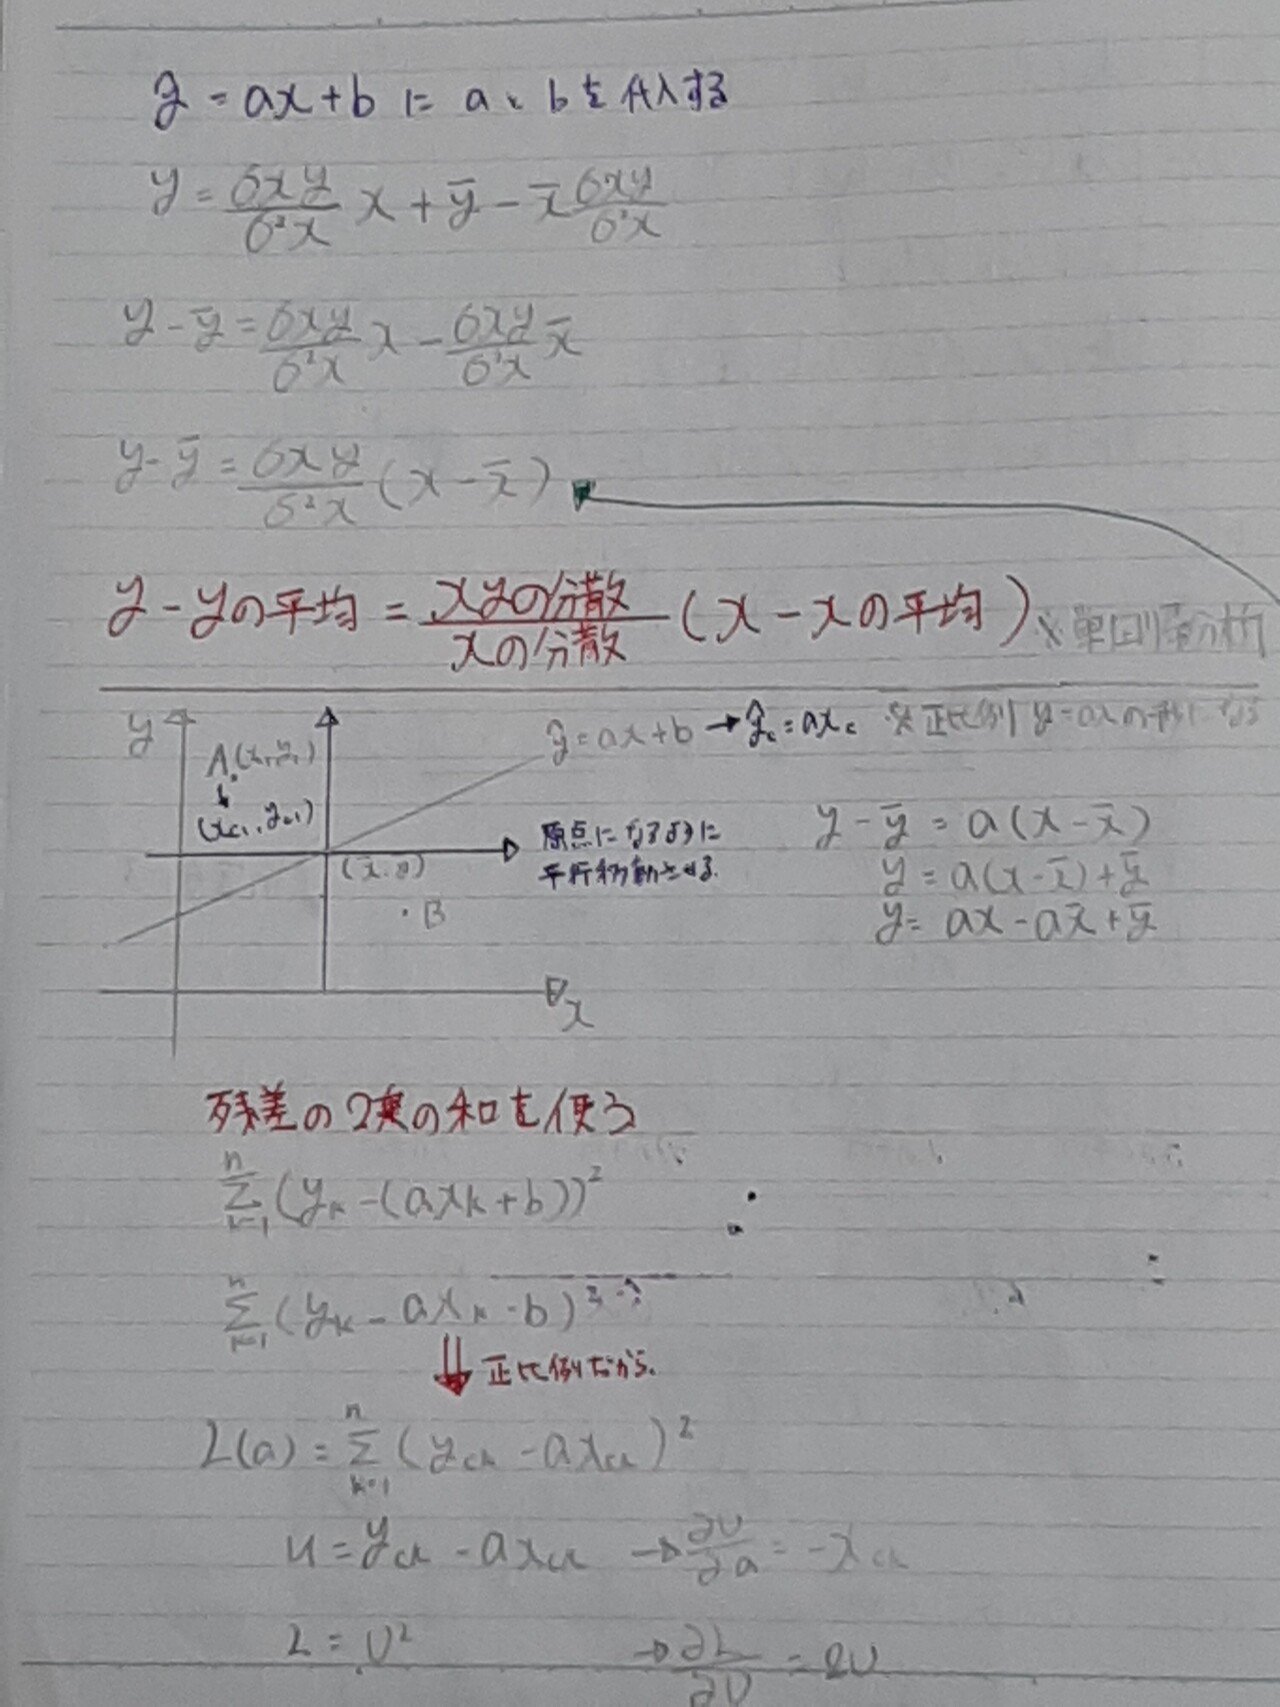 ŷ = ax+b に a、bを代入する
y = σxy/σ²x x + ȳ - x̄ σxy/σ²x
y - ȳ = σxy/σ²x x - σxy/σ²x x̄
y - ȳ = σxy/σ²x (x - x̄)
y - yの平均 = xyの分散/xの分散 (x - xの平均) ※単回帰分析
y
ŷ = ax+b → ŷc = axc ※正比例 y = axの形になる
A (x₁, y₁)
(xc1, yc1)
原点になるように
平行移動させる
(x̄, ȳ)
B
x
y - ȳ = a(x - x̄)
y = a(x - x̄) + ȳ
y = ax - ax̄ + ȳ
残差の2乗の和を使う
n Σ k=1 (yk - (axk + b))²
n Σ k=1 (yk - axk - b)²
⇓ 正比例だから
L(a) = n Σ k=1 (yck - axck)²
u = yck - axck → ∂U/∂a = -xck
L = U² → ∂L/∂U = 2U